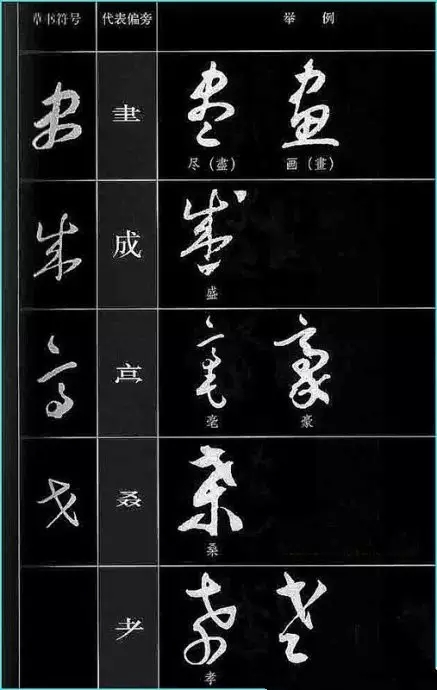 草书符号 代表偏旁 举 例
尽（盡） 画（畫）
成
盛
毫 豪
叒
桑
耂
孝